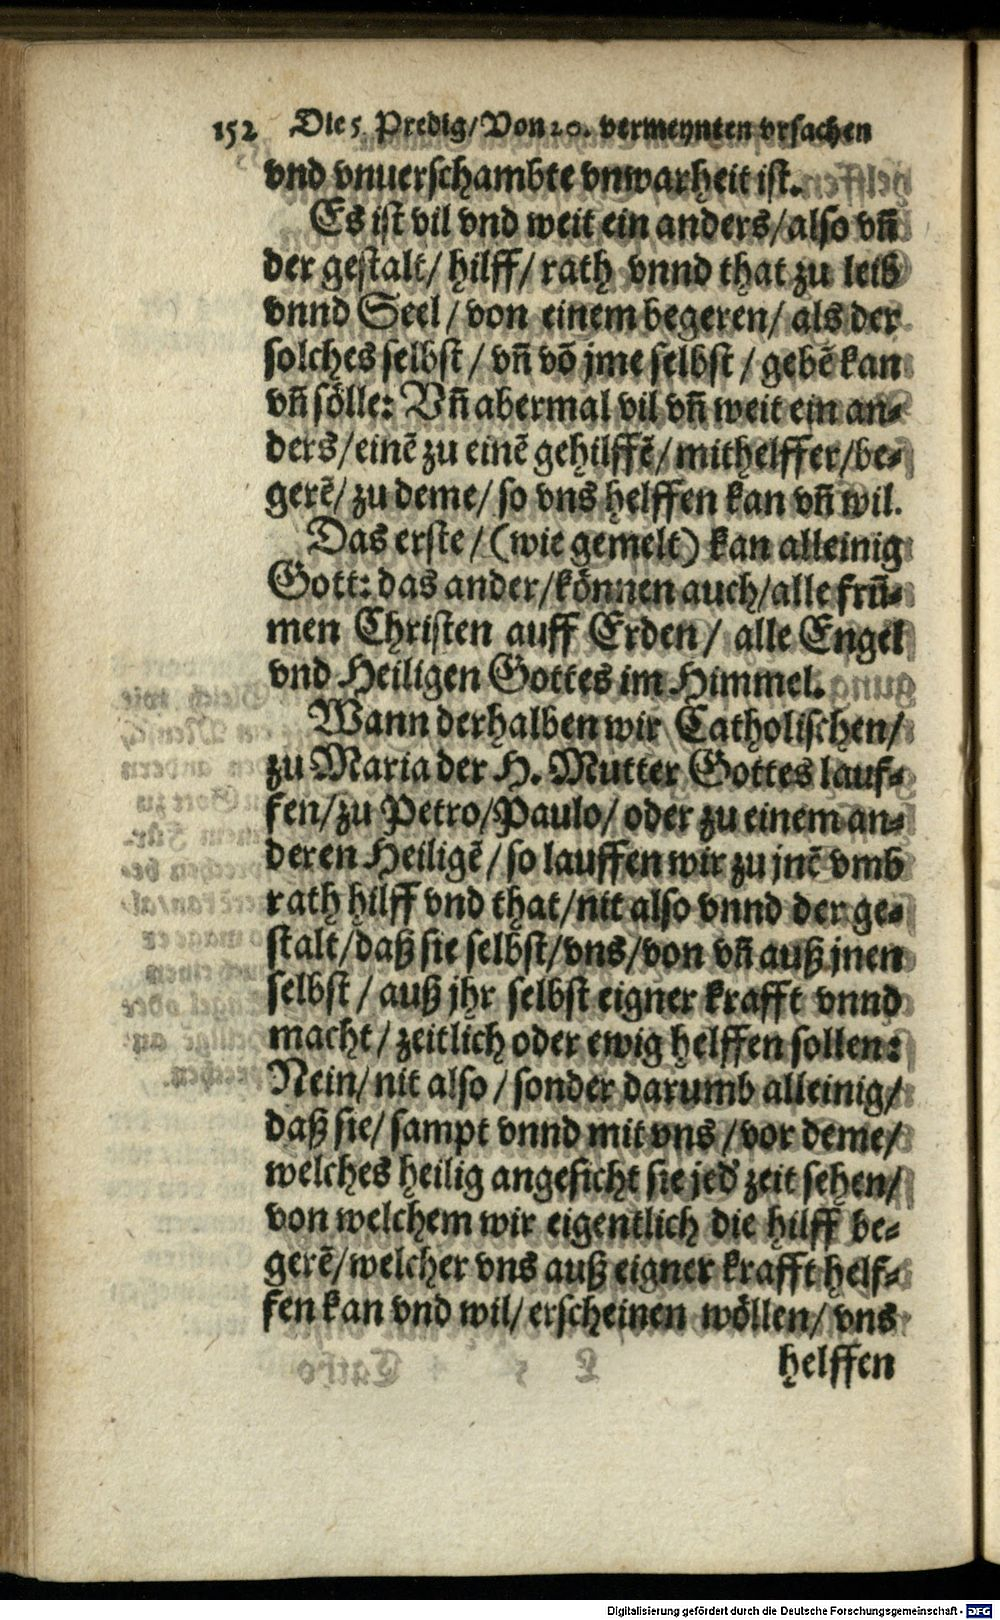 152 Die 5. Predig/ Von 20. vermeynten vrsachen
vnd vnuerschambte vnwarheit ist.
Es ist vil vnd weit ein anders/also vñ
der gestalt/ hilff/ rath vnnd that zu leib
vnnd Seel/ von einem begeren/ als der
solches selbst/ vñ võ jme selbst/ gebẽ kan
vñ sölle: Vñ abermal vil vñ weit ein an-
ders/einẽ zu einẽ gehilffẽ/ mithelffer/be-
gerẽ/ zu deme/ so vns helffen kan vñ wil.
Das erste/ (wie gemelt) kan alleinig
Gott: das ander/können auch/alle frũ-
men Christen auff Erden/ alle Engel
vnd Heiligen Gottes im Himmel.
Wann derhalben wir Catholischen/
zu Maria der H. Mutter Gottes lauf-
fen/zu Petro/Paulo/ oder zu einem an-
deren Heiligẽ/ so lauffen wir zu jnẽ vmb
rath hilff vnd that/nit also vnnd der ge-
stalt/daß sie selbst/vns/von vñ auß jnen
selbst/ auß jhr selbst eigner krafft vnnd
macht/ zeitlich oder ewig helffen sollen:
Nein/ nit also/ sonder darumb alleinig/
daß sie/ sampt vnnd mit vns/ vor deme/
welches heilig angesicht sie jed' zeit sehen/
von welchem wir eigentlich die hilff be-
gerẽ/welcher vns auß eigner krafft helf-
fen kan vnd wil/ erscheinen wöllen/ vns
helffen
Digitalisierung gefördert durch die Deutsche Forschungsgemeinschaft - DFG